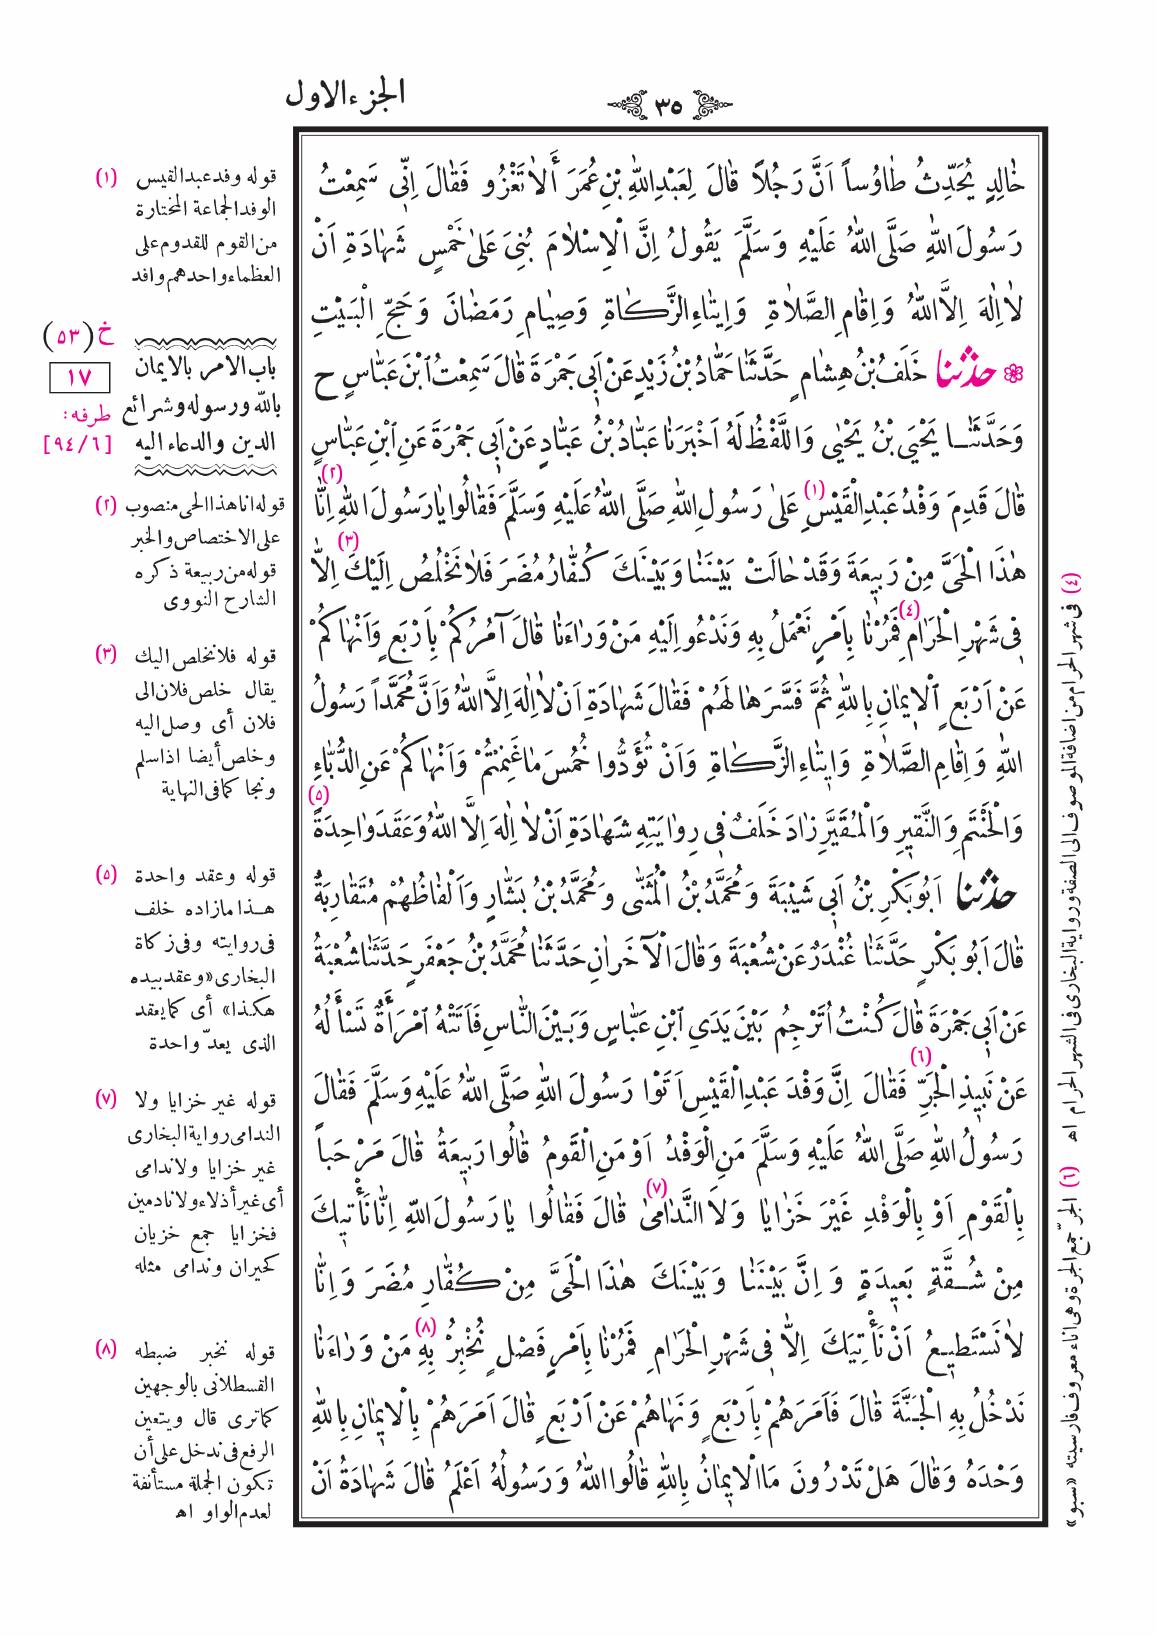 الجزء الاول
٣٥
خَالِدٍ يُحَدِّثُ طَاوُساً اَنَّ رَجُلاً قَالَ لِعَبْدِ اللّٰهِ بْنِ عُمَرَ أَلَا تَغْزُو فَقَالَ اِنِّى سَمِعْتُ
رَسُولَ اللّٰهِ صَلَّى اللّٰهُ عَلَيْهِ وَسَلَّمَ يَقُولُ اِنَّ الْاِسْلَامَ بُنِىَ عَلٰى خَمْسٍ شَهَادَةِ اَنْ
لَا اِلٰهَ اِلَّا اللّٰهُ وَاِقَامِ الصَّلَاةِ وَاِيتَاءِ الزَّكَاةِ وَصِيَامِ رَمَضَانَ وَحَجِّ الْبَيْتِ
❁ حدثنا خَلَفُ بْنُ هِشَامٍ حَدَّثَنَا حَمَّادُ بْنُ زَيْدٍ عَنْ اَبِى جَمْرَةَ قَالَ سَمِعْتُ ابْنَ عَبَّاسٍ ح
وَحَدَّثَنَا يَحْيَى بْنُ يَحْيٰى وَاللَّفْظُ لَهُ اَخْبَرَنَا عَبَّادُ بْنُ عَبَّادٍ عَنْ اَبِى جَمْرَةَ عَنِ ابْنِ عَبَّاسٍ
قَالَ قَدِمَ وَفْدُ عَبْدِ الْقَيْسِ (١) عَلٰى رَسُولِ اللّٰهِ صَلَّى اللّٰهُ عَلَيْهِ وَسَلَّمَ فَقَالُوا يَا رَسُولَ اللّٰهِ اِنَّا (٢)
هٰذَا الْحَىَّ مِنْ رَبِيعَةَ وَقَدْ حَالَتْ بَيْنَنَا وَبَيْنَكَ كُفَّارُ مُضَرَ فَلَا نَخْلُصُ اِلَيْكَ (٣) اِلَّا
فِى شَهْرِ الْحَرَامِ (٤) فَمُرْنَا بِاَمْرٍ نَعْمَلُ بِهِ وَنَدْعُو اِلَيْهِ مَنْ وَرَاءَنَا قَالَ آمُرُكُمْ بِاَرْبَعٍ وَاَنْهَاكُمْ
عَنْ اَرْبَعٍ الْاِيمَانِ بِاللّٰهِ ثُمَّ فَسَّرَهَا لَهُمْ فَقَالَ شَهَادَةِ اَنْ لَا اِلٰهَ اِلَّا اللّٰهُ وَاَنَّ مُحَمَّداً رَسُولُ
اللّٰهِ وَاِقَامِ الصَّلَاةِ وَاِيتَاءِ الزَّكَاةِ وَاَنْ تُؤَدُّوا خُمُسَ مَا غَنِمْتُمْ وَاَنْهَاكُمْ عَنِ الدُّبَّاءِ
وَالْحَنْتَمِ وَالنَّقِيرِ وَالْمُقَيَّرِ زَادَ خَلَفٌ فِى رِوَايَتِهِ شَهَادَةِ اَنْ لَا اِلٰهَ اِلَّا اللّٰهُ وَعَقَدَ وَاحِدَةً (٥)
حدثنا اَبُو بَكْرِ بْنُ اَبِى شَيْبَةَ وَمُحَمَّدُ بْنُ الْمُثَنّٰى وَمُحَمَّدُ بْنُ بَشَّارٍ وَاَلْفَاظُهُمْ مُتَقَارِبَةٌ
قَالَ اَبُو بَكْرٍ حَدَّثَنَا غُنْدَرٌ عَنْ شُعْبَةَ وَقَالَ الْآخَرَانِ حَدَّثَنَا مُحَمَّدُ بْنُ جَعْفَرٍ حَدَّثَنَا شُعْبَةُ
عَنْ اَبِى جَمْرَةَ قَالَ كُنْتُ اُتَرْجِمُ بَيْنَ يَدَىِ ابْنِ عَبَّاسٍ وَبَيْنَ النَّاسِ فَاَتَتْهُ امْرَأَةٌ تَسْأَلُهُ
عَنْ نَبِيذِ الْجَرِّ (٦) فَقَالَ اِنَّ وَفْدَ عَبْدِ الْقَيْسِ اَتَوْا رَسُولَ اللّٰهِ صَلَّى اللّٰهُ عَلَيْهِ وَسَلَّمَ فَقَالَ
رَسُولُ اللّٰهِ صَلَّى اللّٰهُ عَلَيْهِ وَسَلَّمَ مَنِ الْوَفْدُ اَوْ مَنِ الْقَوْمُ قَالُوا رَبِيعَةُ قَالَ مَرْحَباً
بِالْقَوْمِ اَوْ بِالْوَفْدِ غَيْرَ خَزَايَا وَلَا النَّدَامٰى (٧) قَالَ فَقَالُوا يَا رَسُولَ اللّٰهِ اِنَّا نَأْتِيكَ
مِنْ شُقَّةٍ بَعِيدَةٍ وَاِنَّ بَيْنَنَا وَبَيْنَكَ هٰذَا الْحَىَّ مِنْ كُفَّارِ مُضَرَ وَاِنَّا
لَا نَسْتَطِيعُ اَنْ نَأْتِيَكَ اِلَّا فِى شَهْرِ الْحَرَامِ فَمُرْنَا بِاَمْرٍ فَصْلٍ نُخْبِرُ (٨) بِهِ مَنْ وَرَاءَنَا
نَدْخُلُ بِهِ الْجَنَّةَ قَالَ فَاَمَرَهُمْ بِاَرْبَعٍ وَنَهَاهُمْ عَنْ اَرْبَعٍ قَالَ اَمَرَهُمْ بِالْاِيمَانِ بِاللّٰهِ
وَحْدَهُ وَقَالَ هَلْ تَدْرُونَ مَا الْاِيمَانُ بِاللّٰهِ قَالُوا اللّٰهُ وَرَسُولُهُ اَعْلَمُ قَالَ شَهَادَةُ اَنْ
(١) قوله وفد عبد القيس
الوفد الجماعة المختارة
من القوم للقدوم على
العظماء واحدهم وافد
خ (٥٣)
١٧
طرفه:
[٩٤/٦]
باب الامر بالايمان
بالله ورسوله وشرائع
الدين والدعاء اليه
(٢) قوله انا هذا الحى منصوب
على الاختصاص والخبر
قوله من ربيعة ذكره
الشارح النووى
(٣) قوله فلا نخلص اليك
يقال خلص فلان الى
فلان أى وصل اليه
وخلص أيضا اذا سلم
ونجا كما فى النهاية
(٥) قوله وعقد واحدة
هذا ما زاده خلف
فى روايته وفى زكاة
البخارى «وعقد بيده
هكذا» أى كما يعقد
الذى يعدّ واحدة
(٧) قوله غير خزايا ولا
الندامى رواية البخارى
غير خزايا ولا ندامى
أى غير أذلاء ولا نادمين
فخزايا جمع خزيان
كحيران وندامى مثله
(٨) قوله نخبر ضبطه
القسطلانى بالوجهين
كما ترى قال ويتعين
الرفع فى ندخل على أن
تكون الجملة مستأنفة
لعدم الواو اه
(٤) فى شهر الحرام من اضافة الموصوف الى الصفة ورواية البخارى فى الشهر الحرام اه
(٦) الجرّ جمع الجرة وهى اناء معروف فارسيته «سبو»